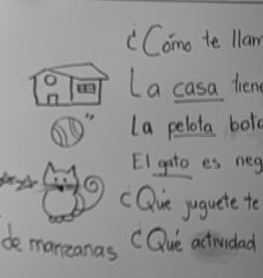 ¿Cómo te llam
La casa tiene
La pelota bota
El gato es neg
¿Qué juguete te
de manzanas ¿Qué actividad